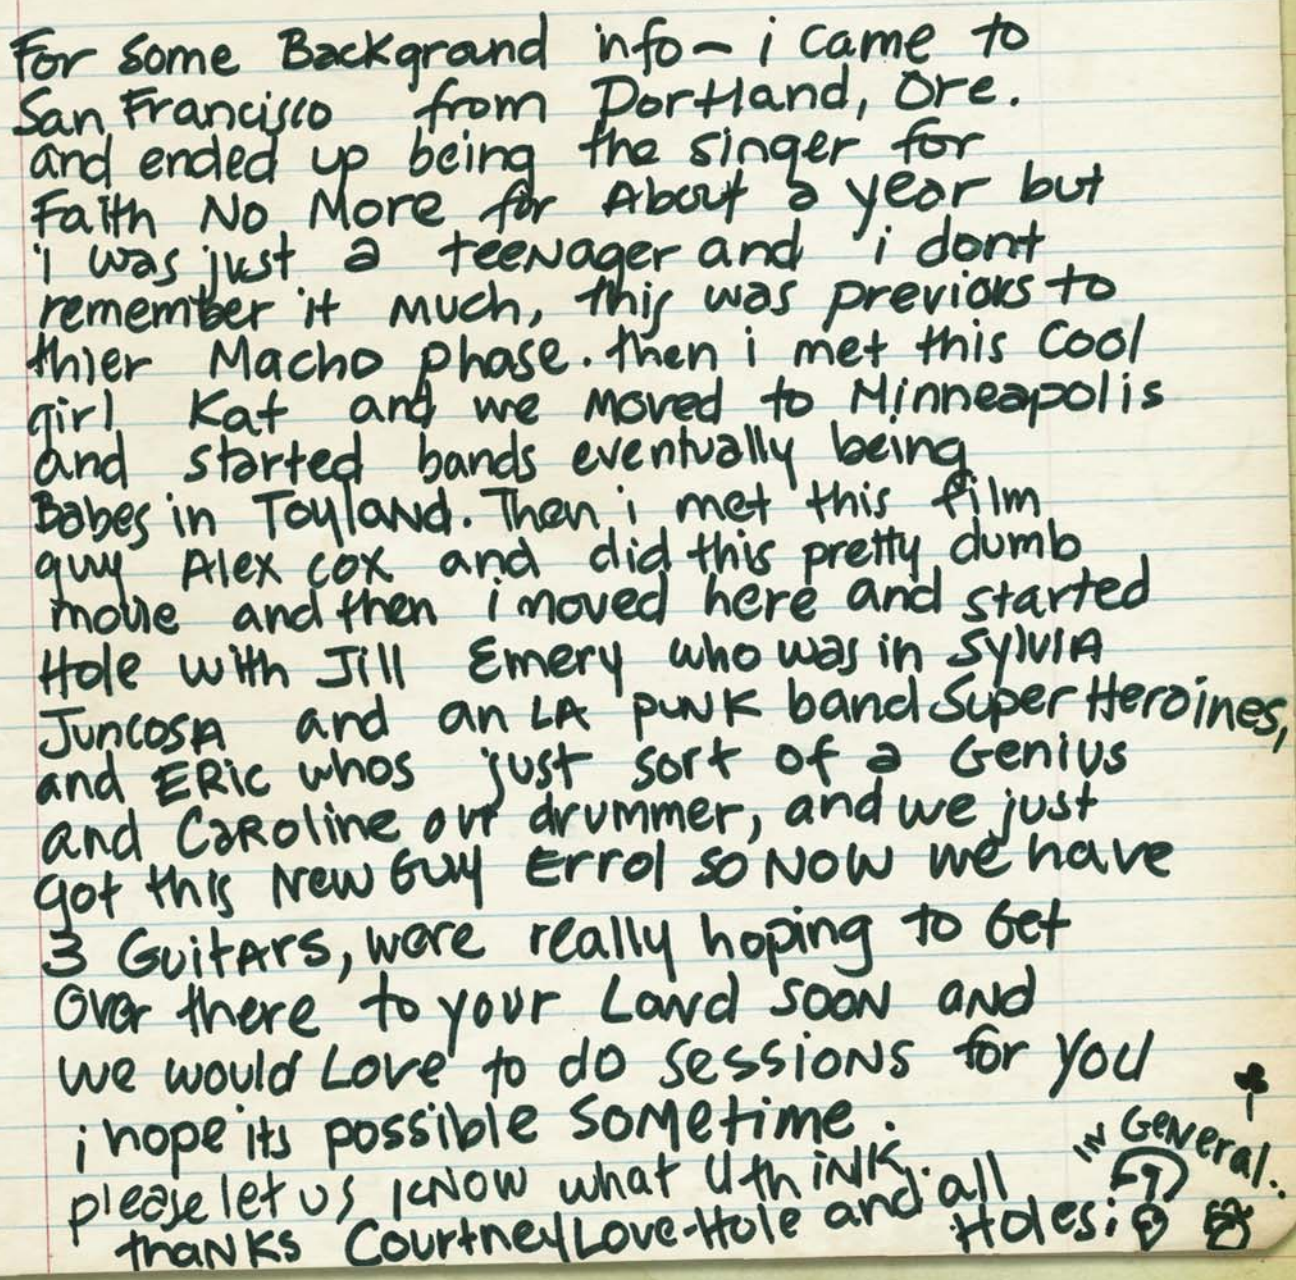 For some Background info - i came to
San Francisco from Portland, Ore.
and ended up being the singer for
Faith No More for About a year but
i was just a teeNager and i dont
remember it much, this was previous to
thier Macho phase. then i met this Cool
girl Kat and we moved to Minneapolis
and started bands eventually being
Babes in ToylaNd. Then i met this film
guy Alex cox and did this pretty dumb
movie and then i moved here and started
Hole with Jill Emery who was in SylvIA
JuncosA and an LA puNK band Super Heroines,
and ERic whos just sort of a Genius
and CaRoline our drummer, and we just
got this New Guy Errol so NOW we have
3 GuitARS, were really hoping to Get
Over there to your LaNd SOON aND
we would Love to do sessioNs for you
i hope its possible SoMetime.
please let us kNow what U thiNK.
thaNKs Courtney Love-Hole and all
Holes: IN GeNeral.